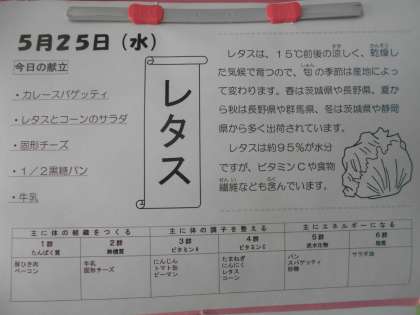 旬
5月25日(水)
今日の献立
・カレースパゲッティ
・レタスとコーンのサラダ
・固形チーズ
・1/2黒糖パン
・牛乳
レタス
レタスは、15℃前後の涼しく、乾燥し
た気候で育つので、旬の季節は産地によっ
て変わります。春は茨城県や長野県、夏か
ら秋は長野県や群馬県、冬は茨城県や静岡
県から多く出荷されています。
レタスは約95%が水分
ですが、ビタミンCや食物
繊維なども含んでいます。
主に体の組織をつくる 主に体の調子を整える 主にエネルギーになる
1群 2群 3群 4群 5群 6群
たんぱく質 無機質 ビタミンA ビタミンC 炭水化物 脂質
豚ひき肉 牛乳 にんじん たまねぎ パン サラダ油
ベーコン 固形チーズ トマト缶 にんにく スパゲッティ
ピーマン レタス 砂糖
コーン